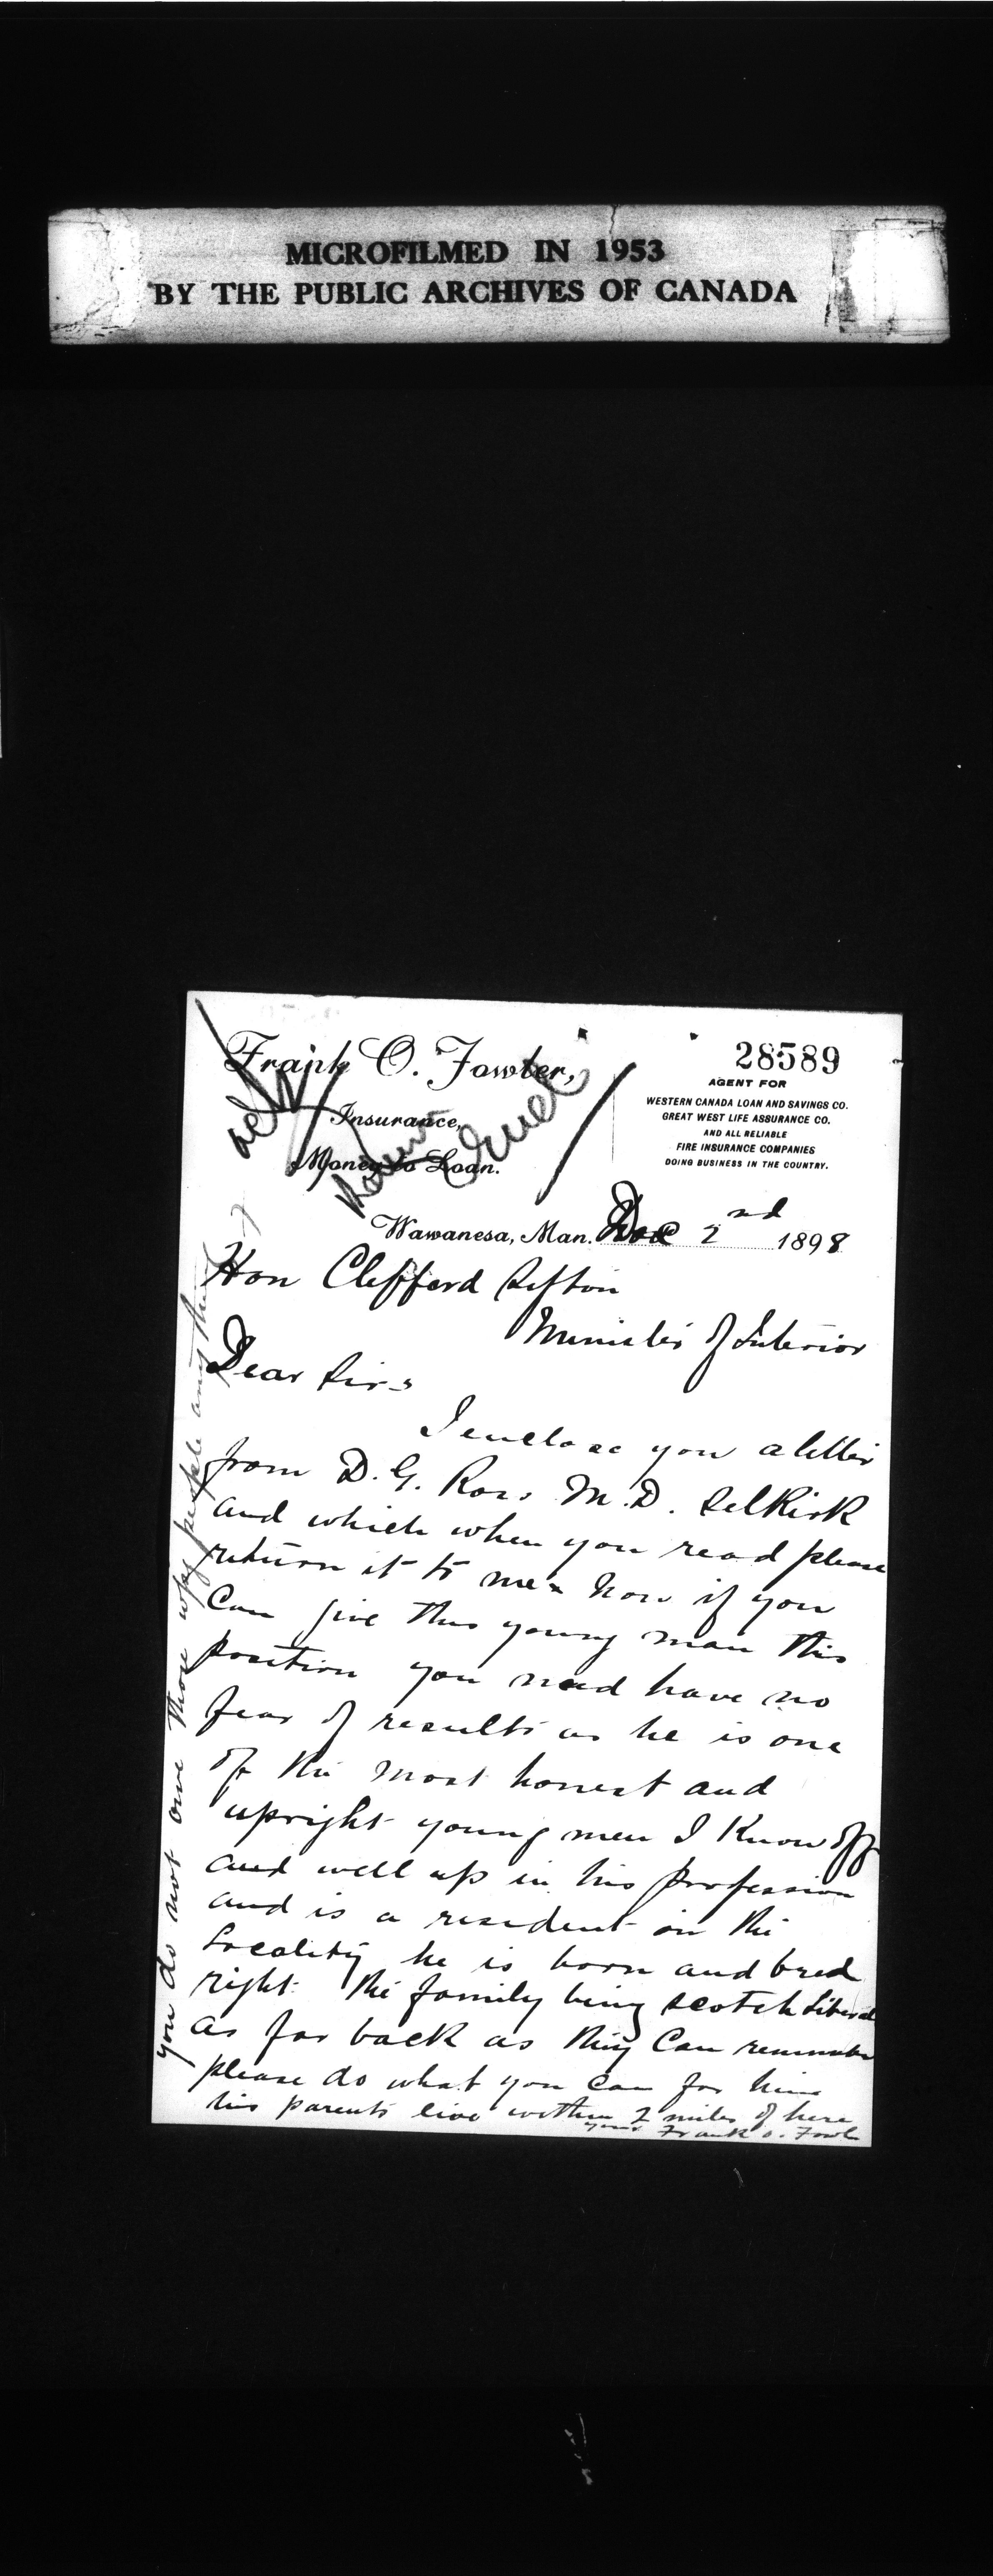 MICROFILMED IN 1953
BY THE PUBLIC ARCHIVES OF CANADA
28589
Frank O. Fowler,
Insurance,
Money to Loan.
AGENT FOR
WESTERN CANADA LOAN AND SAVINGS CO.
GREAT WEST LIFE ASSURANCE CO.
AND ALL RELIABLE
FIRE INSURANCE COMPANIES
DOING BUSINESS IN THE COUNTRY.
ack
Wawanesa, Man. Dec 2nd 1898
Hon Clifford Sifton
Minister of Interior
Dear Sir
I enclose you a letter
from D. G. Ross M.D. Selkirk
and which when you read please
return it to me Now if you
Can give this young man this
position you need have no
fear of results as he is one
of the most honest and
upright young men I Know off
and well up in his profession
and is a resident in the
Locality he is born and bred
right the family being Scotch Liberal
as far back as they Can remember
please do what you can for him
his parents live within 2 miles of here
yours Frank O. Fowler
you do not owe those people and they